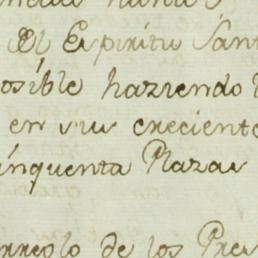 El Espiritu Sant
osible haziendo
en sus creciente
inquenta Plazas
rreglo de los Pre